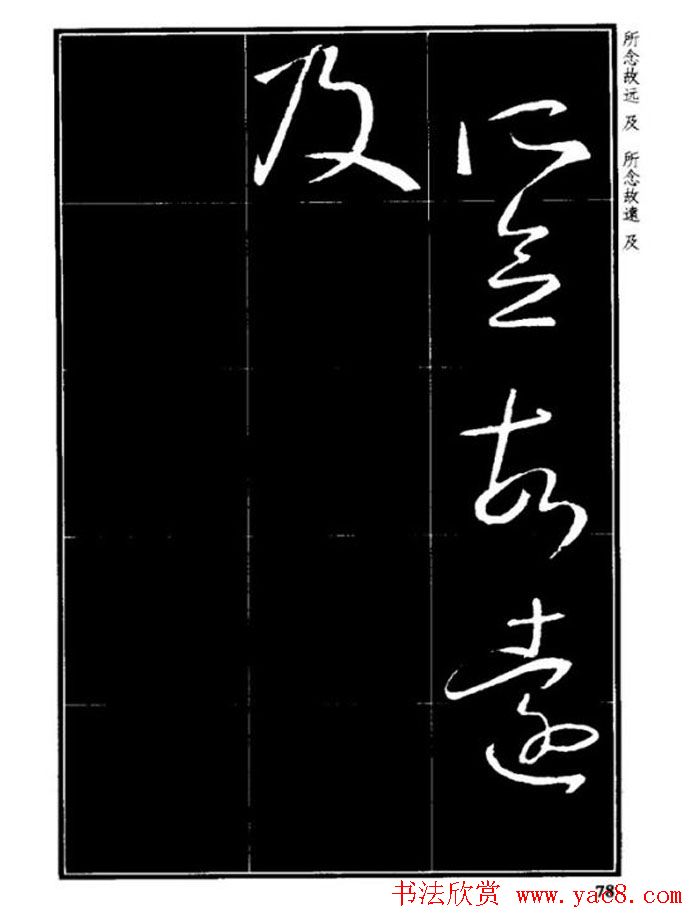 所念故遠
及
所念故远 及 所念故遠 及
78
书法欣赏 www.yac8.com